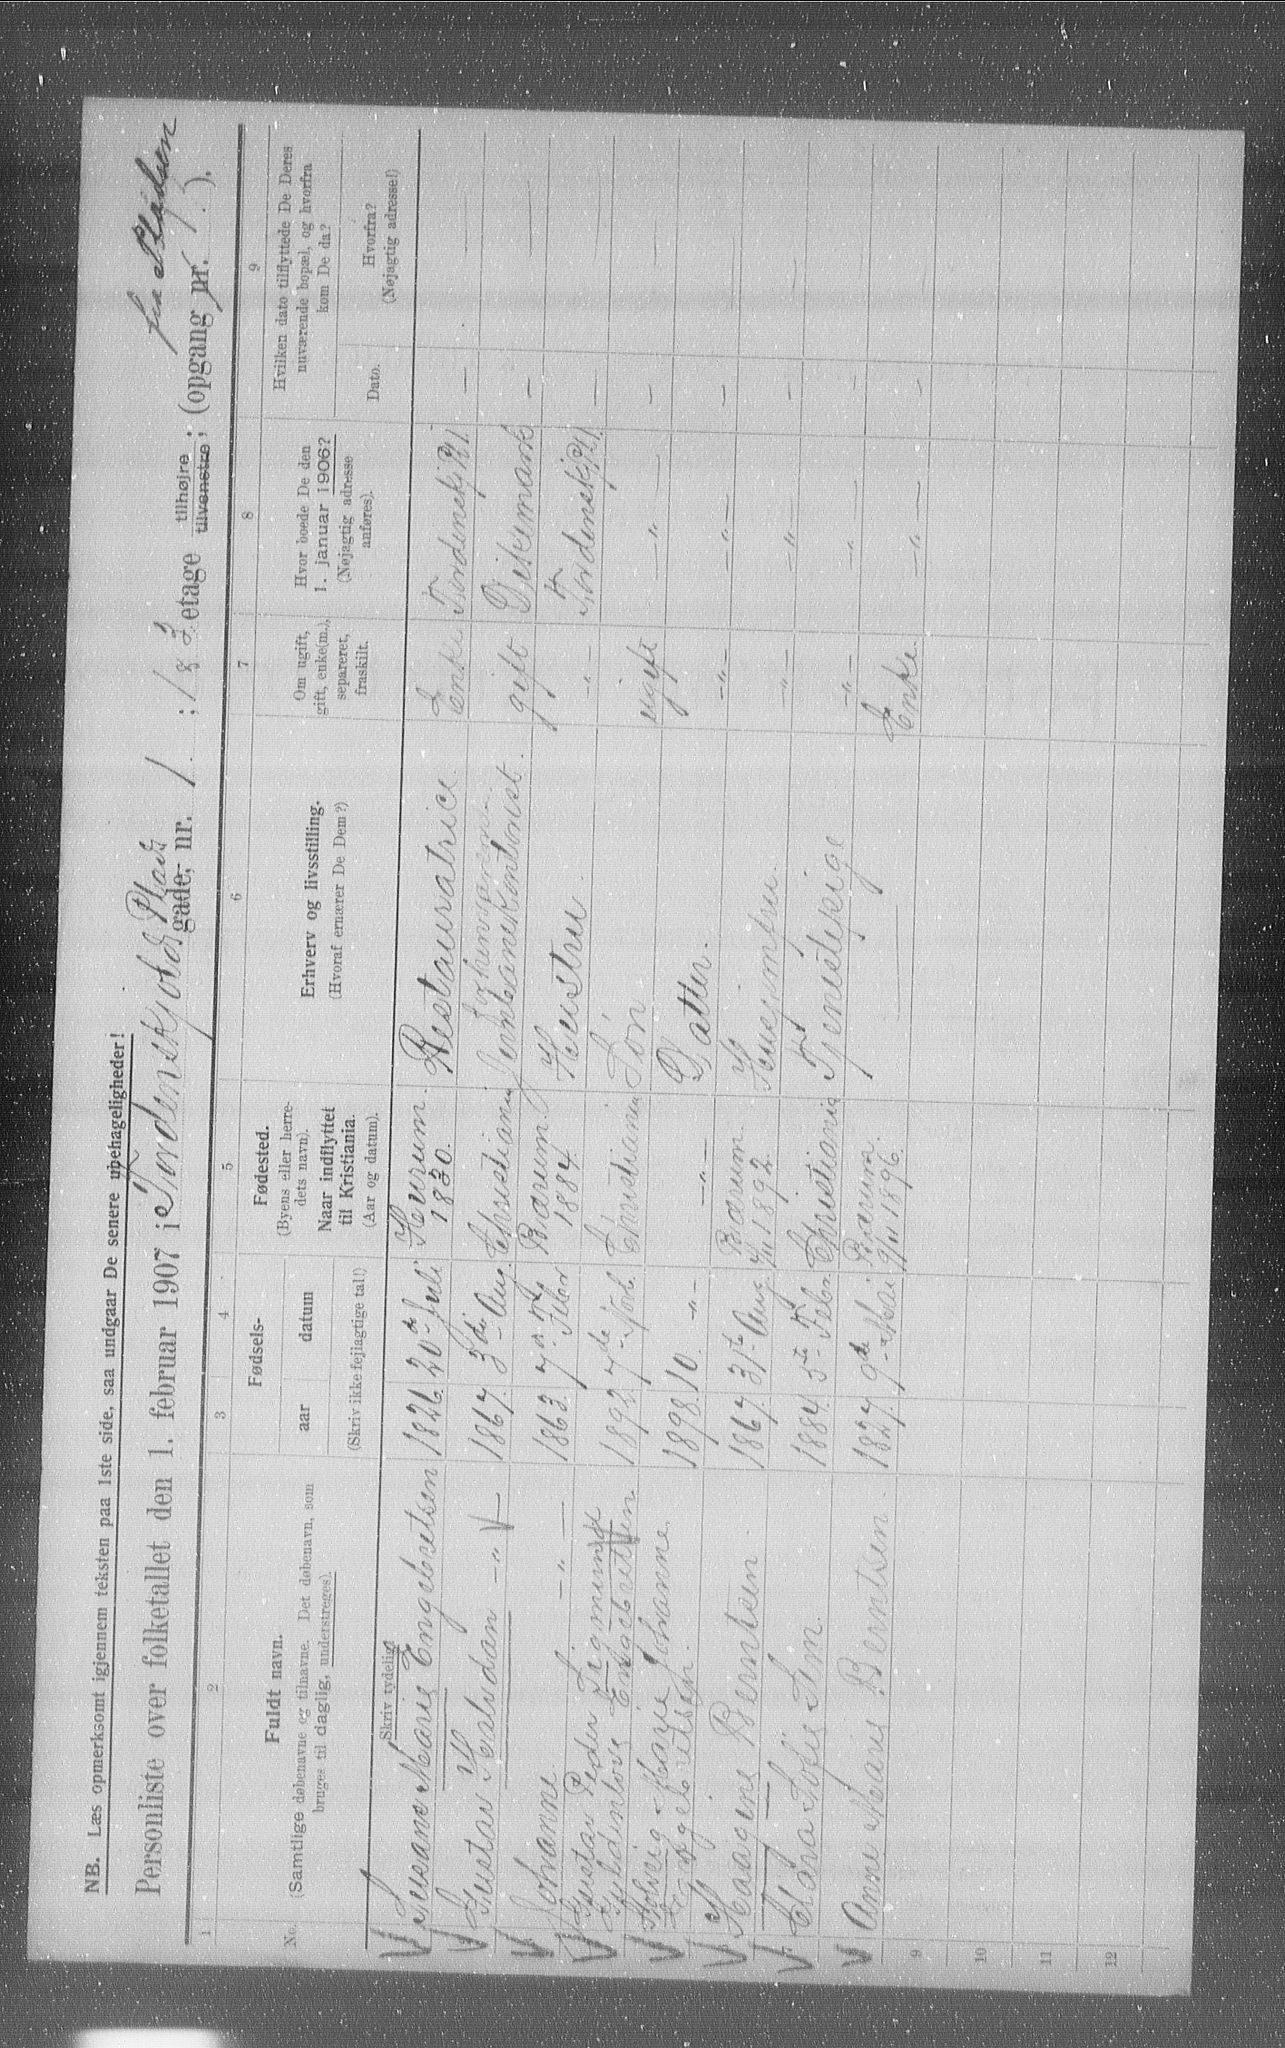 NB. Læs opmerksomt igjennem teksten paa 1ste side, saa undgaar De senere ubehageligheder!
fra Pladsen
Personliste over folketallet den 1. februar 1907 i Tordenskjolds Plads gade, nr. 1 ; 1 & 2 etage tilhøjre tilvenstre; (opgang nr. 1.).
1 2 3 4 5 6 7 8 9
No.
Fuldt navn.
(Samtlige døbenavne og tilnavne. Det døbenavn, som
bruges til daglig, understreges).
Skriv tydelig!
Fødsels-
aar datum
(Skriv ikke fejlagtige tal!)
Fødested.
(Byens eller herre-
dets navn).
Naar indflyttet
til Kristiania.
(Aar og datum).
Erhverv og livsstilling.
(Hvoraf ernærer De Dem?)
Om ugift,
gift, enke(m.),
separeret,
fraskilt.
Hvor boede De den
1. januar 1906?
(Nøjagtig adresse
anføres).
Hvilken dato tilflyttede De Deres
nuværende bopæl, og hvorfra
kom De da?
Dato.
Hvorfra?
(Nøjagtig adresse!)
Susane Marie Engebretsen 1826. 20de Juli Hurum. 1830. Restauratrice. Enke Tordenskj Pl 1. —
Gustav Halvdan —"— 1867. 3die Aug. Christiania Jernbanekontorist. gift Dikemark —
Johanne —"— 1863. 7de Febr Bærum. 1884. Hustru. —"— Tordenskj Pl 1. —
Gustav Peder Sigmund
Gyldenlove Engebretsen. 1892. 7de Novb. Christiania Søn ugift —"— —
Solveig Marie Johanne
Engebretsen. 1898. 10. —"— —"— Datter. —"— —"— —
Haagine Berntsen 1867. 31te Aug Bærum. 1892. Husjomfru. —"— —"— —
Clara Sofie Sim. 1884. 5te Febr. Christiania Tjenestepige —"— —"— —
Anne Marie Berntsen. 1827. 9de Mai Bærum. 9/11 1896. — Enke. —"— —
9
10
11
12